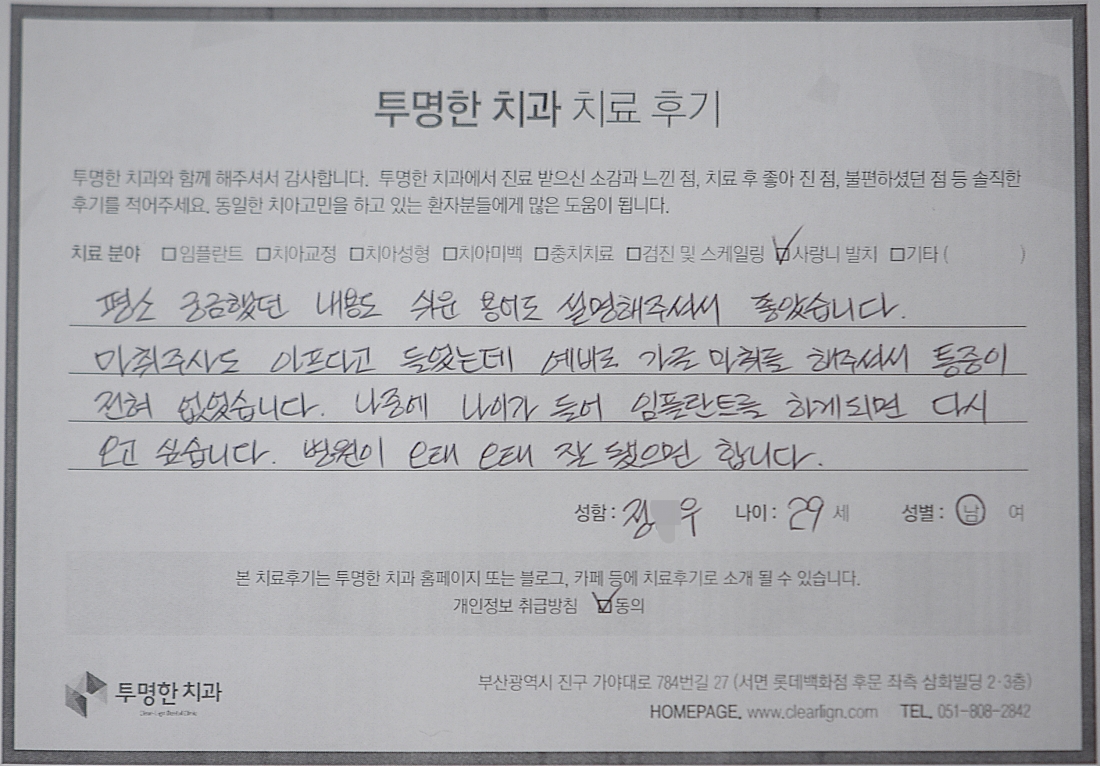 투명한 치과 치료 후기
투명한 치과와 함께 해주셔서 감사합니다. 투명한 치과에서 진료 받으신 소감과 느낀 점, 치료 후 좋아 진 점, 불편하셨던 점 등 솔직한
후기를 적어주세요. 동일한 치아고민을 하고 있는 환자분들에게 많은 도움이 됩니다.
치료 분야 □임플란트 □치아교정 □치아성형 □치아미백 □충치치료 □검진 및 스케일링 ☑사랑니 발치 □기타 ( )
평소 궁금했던 내용도 쉬운 용어로 설명해주셔서 좋았습니다.
마취주사도 아프다고 들었는데 예비로 가글 마취를 해주셔서 통증이
전혀 없었습니다. 나중에 나이가 들어 임플란트를 하게되면 다시
오고 싶습니다. 병원이 오래 오래 잘 됐으면 합니다.
성함 : 정 우 나이 : 29 세 성별 : 남 여
본 치료후기는 투명한 치과 홈페이지 또는 블로그, 카페 등에 치료후기로 소개 될 수 있습니다.
개인정보 취급방침 ☑동의
투명한 치과
부산광역시 진구 가야대로 784번길 27 (서면 롯데백화점 후문 좌측 삼화빌딩 2·3층)
HOMEPAGE. www.clearlign.com TEL. 051-808-2842